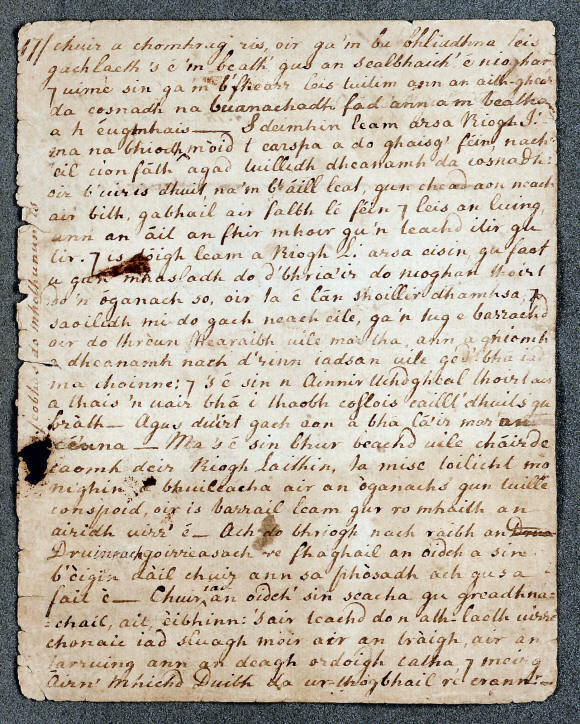 47/ chuir a chomhrag ris, oir ga'm bu bhliadhna leis
gachlaeth 's é 'm beath' gus an sealbhaich' é nioghan
7 uime sin ga'm b'fhearr leis tuitim ann an aith-ghear
da cosnadh na buanachadh fad ann am beatha
a h éugmhais — S deimhin leam arsa Riogh I.
ma na bhiodh m'oid t earspa a do ghaisg' féin, nach
eil cionfàth agad tuillidh dheanamh da cosnadh:
oir b'uiris dhuit, na'm b'àill leat, gun chead aon neach
air bith, gabhail air falbh lé féin 7 leis an luing,
ann an àit an fhir mhoir gu'n teachd itir gu
tir. 7 is dóigh leam a Riogh L. arsa eisin, gu faot
u gun mhasladh do d'bhria'ir do nioghan thoirt
do 'n òganach so, oir ta é làn shoillir dhamhsa, 7
saoilidh mi do gach neach eile, ga'n tug e barrachd
air do threun fhearaibh uile mar tha, ann a gniomh
a dheanamh nach d'rinn iadsan uile ged bha iad
ma choinne: 7 's é sin n Ainnir Uchdgheal thoirt as
a thais 'n uair bhà i thaobh coslois caillt' dhuils gu
bràth — Agus duirt gach aon a bhà làir mar an
céuna — Ma 's é sin bhur beachd uile chàirde
caomh deir Riogh Laithin, ta mise toilicht mo
nighin a bhuileacha air an òganach gun tuille
conspoid, oir is barrail leam gur ro mhaith an
airidh uirr' é — Ach do bhriogh nach raibh an Drua
Druinach goirreasach re fhaghail an oidch a sin
b'éigin dàil chuir ann sa phòsadh ach gus a
fait è — Chuir iad an oidch' sin seacha gu greadhna=
=chail, ait, éibhinn: 'sair teachd do n ath-laoth uirre
chonaic iad sluagh mòir air an tràigh, air an
tarruing ann an deagh ordoigh catha, 7 meirg
Airn' Mhichd Duibh da ur-thògbhail re crann-